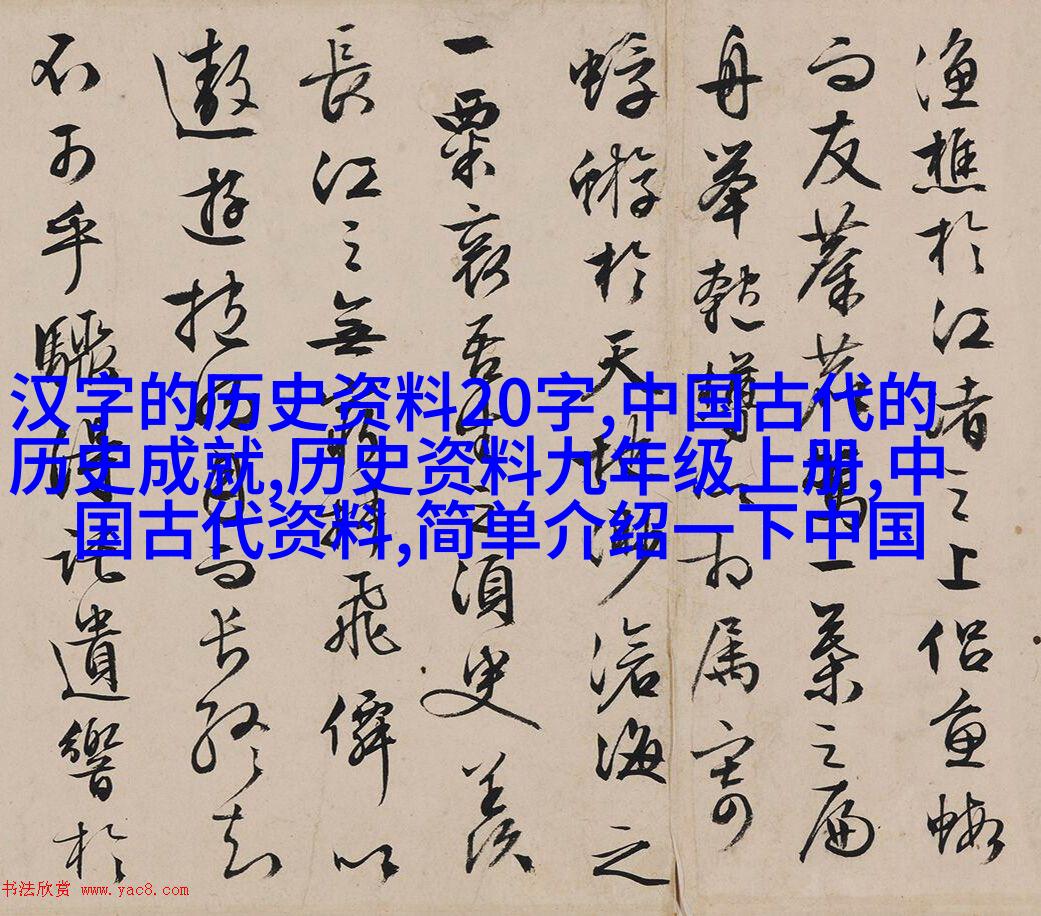 漁樵於江渚之上侶魚蝦
而友麋鹿駕一葉之扁
舟舉匏樽以相属寄
蜉蝣於天地渺滄海之
一粟哀吾生之須臾羨
長江之無窮挾飛僊以
遨遊抱明月而長終知
不可乎驟得託遺響於
汉字的历史资料20字,中国古代的
历史成就,历史资料九年级上册,中
国古代资料,简单介绍一下中国
书法欣赏 www.yac8.com